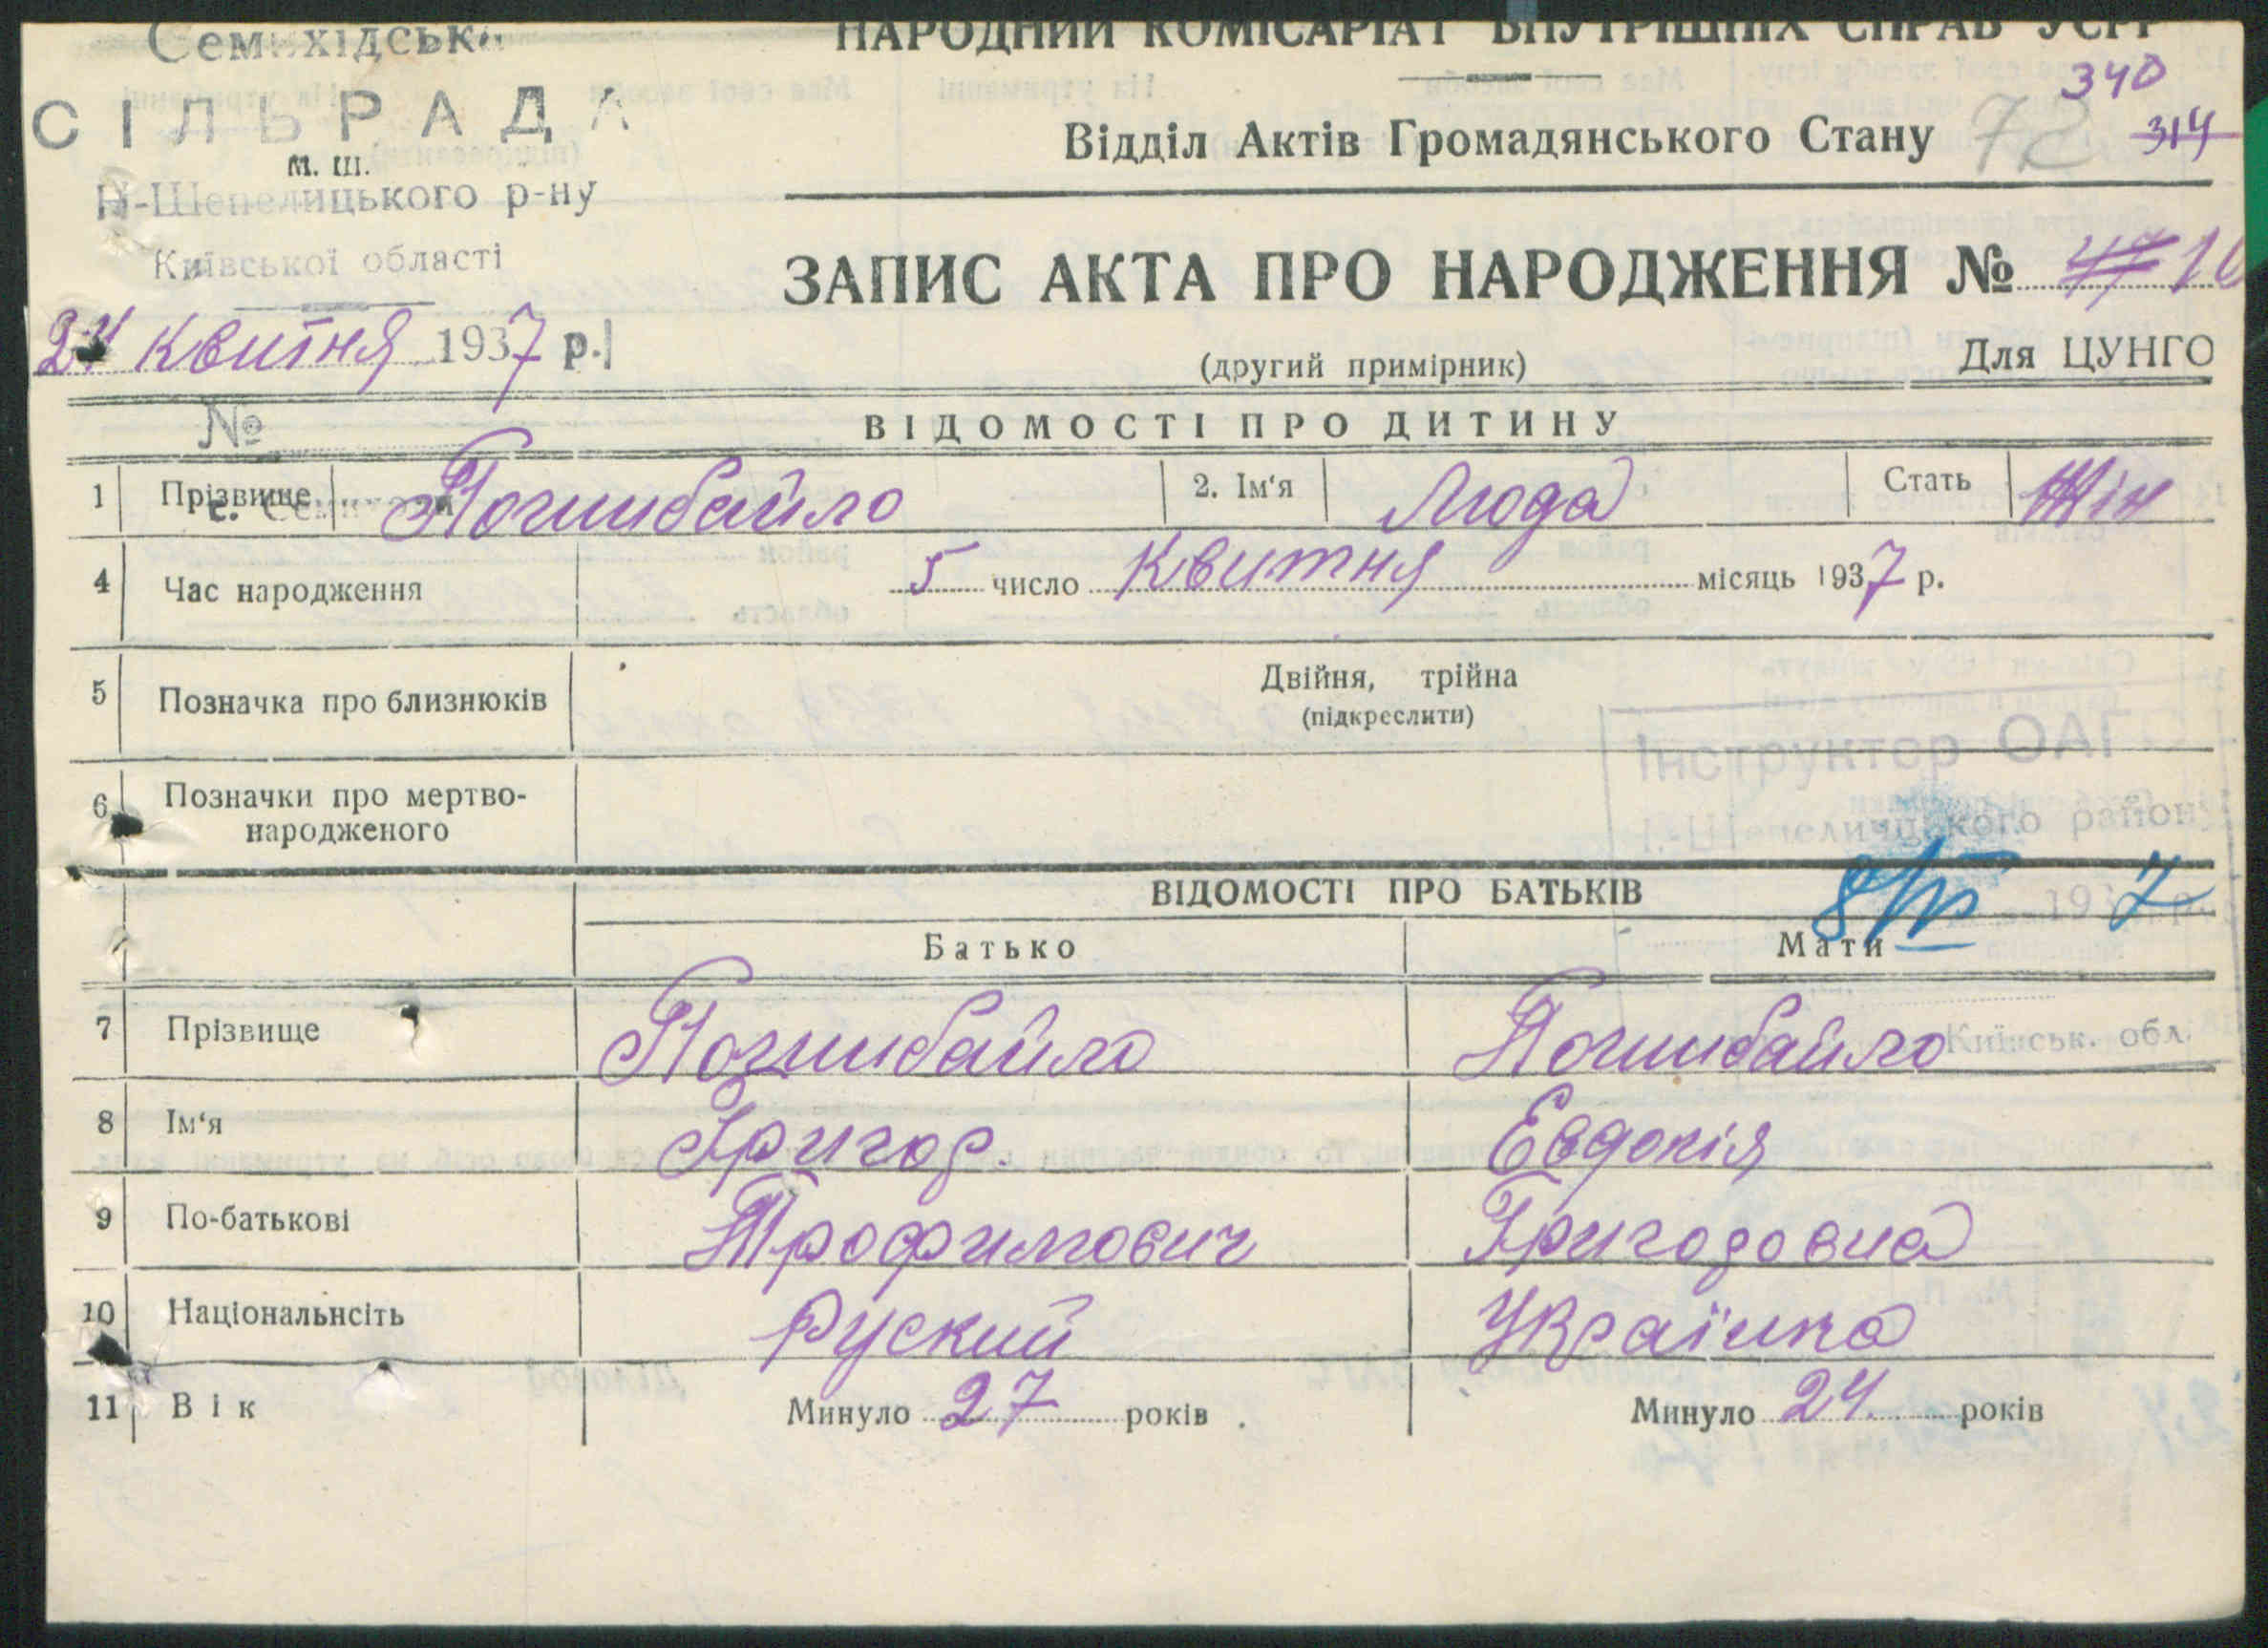 Семихідська
НАРОДНИЙ КОМІСАРІАТ ВНУТРІШНІХ СПРАВ УСРР
340
СІЛЬРАДА
Відділ Актів Громадянського Стану 72 314
м. ш.
Н-Шепелицького р-ну
Київської області
ЗАПИС АКТА ПРО НАРОДЖЕННЯ № 47 10
24 квитня 1937 р.
(другий примірник)
Для ЦУНГО
№
ВІДОМОСТІ ПРО ДИТИНУ
1 Прізвище Погиибайло 2. Ім'я Люда Стать Жін
с. Семиходи
4 Час народження 5 число Квитня місяць 1937 р.
5 Позначка про близнюків Двійня, трійна
(підкреслити)
Інструктор ОАГС
6 Позначки про мертво-
народженого
Н.-Шепелицького району
ВІДОМОСТІ ПРО БАТЬКІВ
8/IV 1937 р.
Батько Мати
7 Прізвище Погиибайло Погиибайло
Київськ. обл.
8 Ім'я Григор. Евдокія
9 По-батькові Трофимович Григоровна
10 Національнсіть Руский Українка
11 Вік Минуло 27 років Минуло 24 років